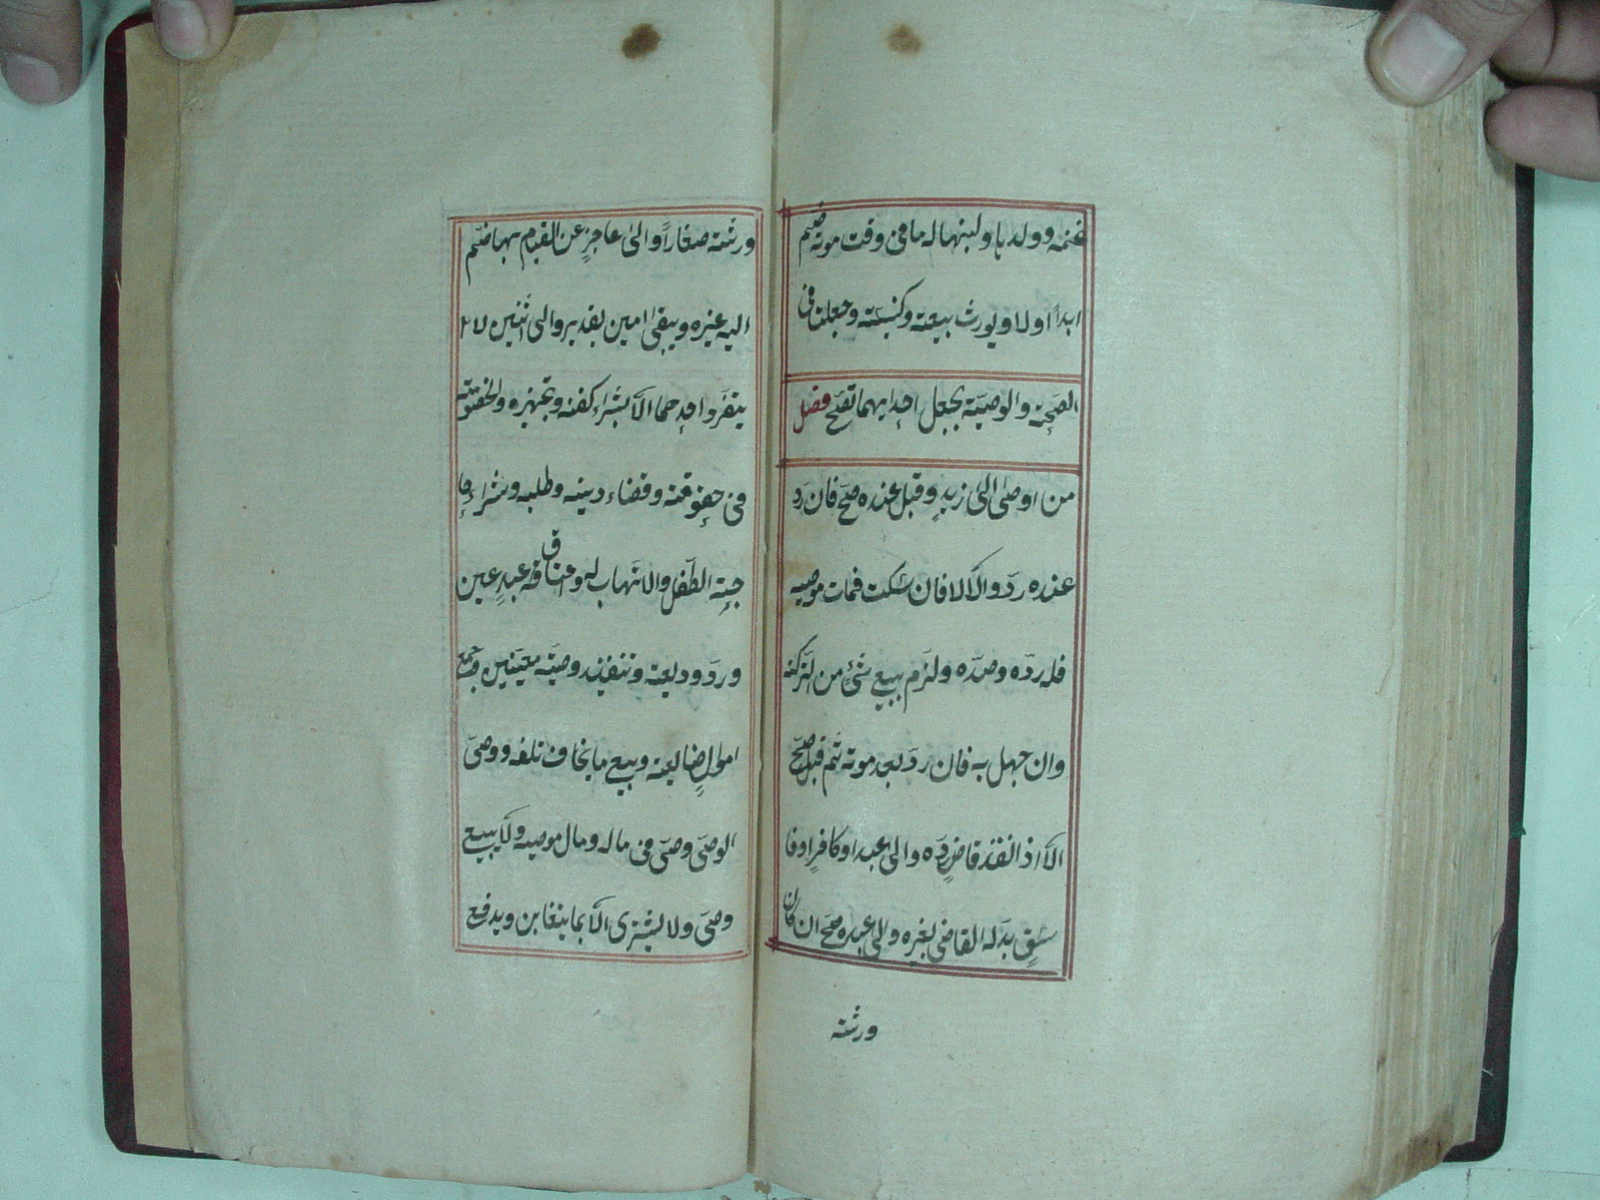 غنمه وولدها ولبنها له ما فى وقت موته ضم
ابدا اولا ويورث بيعته وكنيسته وجعلتا فى
الصحة والوصية بجعل احديهما تصح فصل
من اوصى الى زيد وقبل عنده صح فان رد
عنده رد والا لا فان سكت فمات موصيه
فله رده وضده ولزم ببيع شئ من التركة
وان جهل به فان رد بعد موته ثم قبل صح
الا اذا نفذ قاض رده والى عبد او كافر او فا
سق بدله القاضى بغيره والى عبده صح ان كان
ورثته
ورثته صغارا والى عاجز عن القيام بها ضم
اليه غيره ويبقى امين يقدر والى اثنين لا
ينفرد احدهما الا بشراء كفنه وتجهيزه والخصومة
فى حقوقه وقضاء دينه وطلبه وشراء حا
جة الطفل والاتهاب له واعتاق عبد عين
ورد وديعة وتنفيذ وصية معينين وجمع
اموال ضايعة وبيع ما يخاف تلفه ووصى
الوصى وصى فى ماله ومال موصيه ولا يبيع
وصى ولا يشترى الا بما يتغابن ويدفع